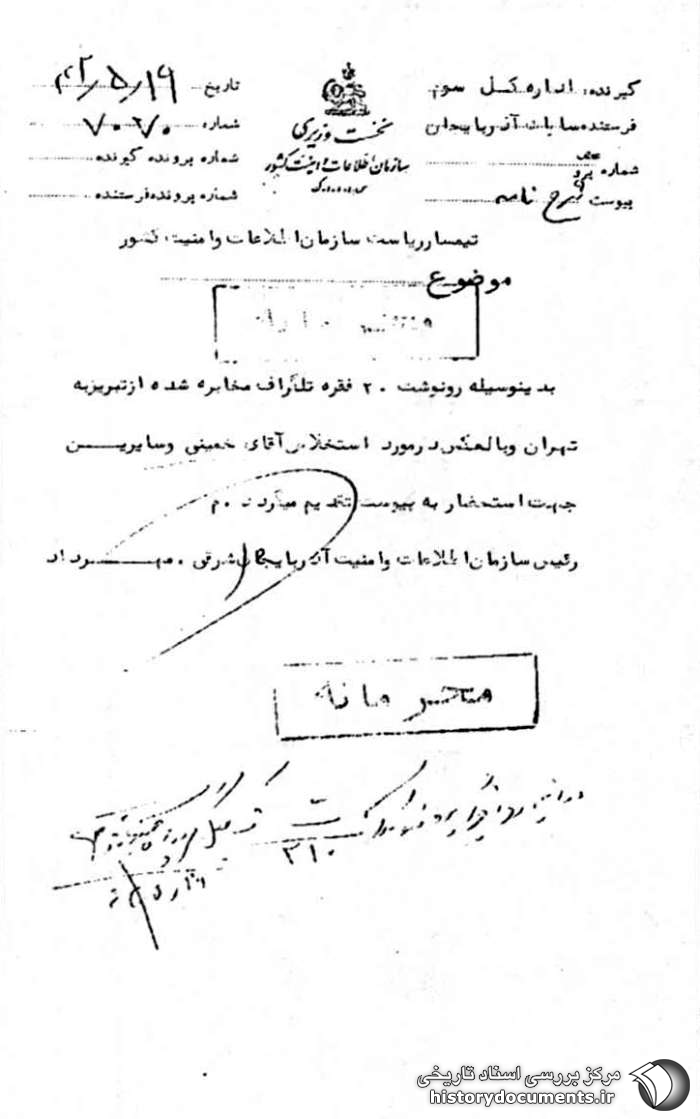 گیرنده: اداره کل سوم
فرستنده ساباب آذربایجان
شماره
پیوست شرح نامه
نخست وزیری
سازمان اطلاعات و امنیت کشور
س.ا.و.ا.ک
تاریخ ۴۲٫۵٫۱۹
شماره ۷۰۶۷۰
شماره پرونده گیرنده
شماره پرونده فرستنده
تیمسار ریاست سازمان اطلاعات و امنیت کشور
موضوع
محرمانه
بدینوسیله رونوشت ۲۰ فقره تلگراف مخابره شده از تبریز به
تهران و بالعکس در مورد استخلاص آقای خمینی و سایرین
جهت استحضار به پیوست تقدیم میگردد . م
رئیس سازمان اطلاعات و امنیت آذربایجان شرقی . مهرداد
محرمانه
۳۱۰
مرکز بررسی اسناد تاریخی
historydocuments.ir